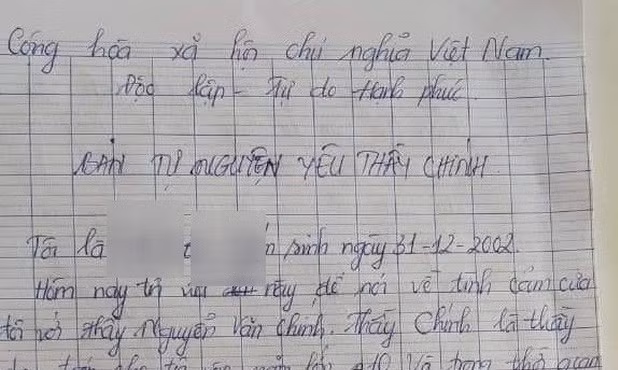 Cộng hòa xã hội chủ nghĩa Việt Nam.
Độc lập - Tự do Hạnh phúc
BẢN TỰ NGUYỆN YÊU THẦY CHÍNH
Tôi là sinh ngày 31-12-2002.
Hôm nay tôi này để nói về tình cảm của
tôi với thầy Nguyễn Văn Chính. Thầy Chính là thầy